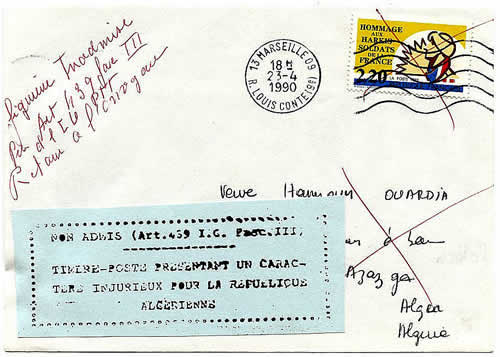 Figurine Inadmise
Art 439 fasc III
d l'I G PTT
Retour à l'Envoyeur
13 MARSEILLE 09
18H
23-4
1990
R. LOUIS CONTE (9E)
HOMMAGE
AUX
HARKIS
SOLDATS
DE LA
FRANCE
2,20
Veuve Hamoun OUARDIA
à
Azazga
Alger
Algérie
NON ADMIS (Art.439 I.G. Fasc.III)
TIMBRE-POSTE PRESENTANT UN CARAC-
TERE INJURIEUX POUR LA REPUBLIQUE
ALGERIENNE